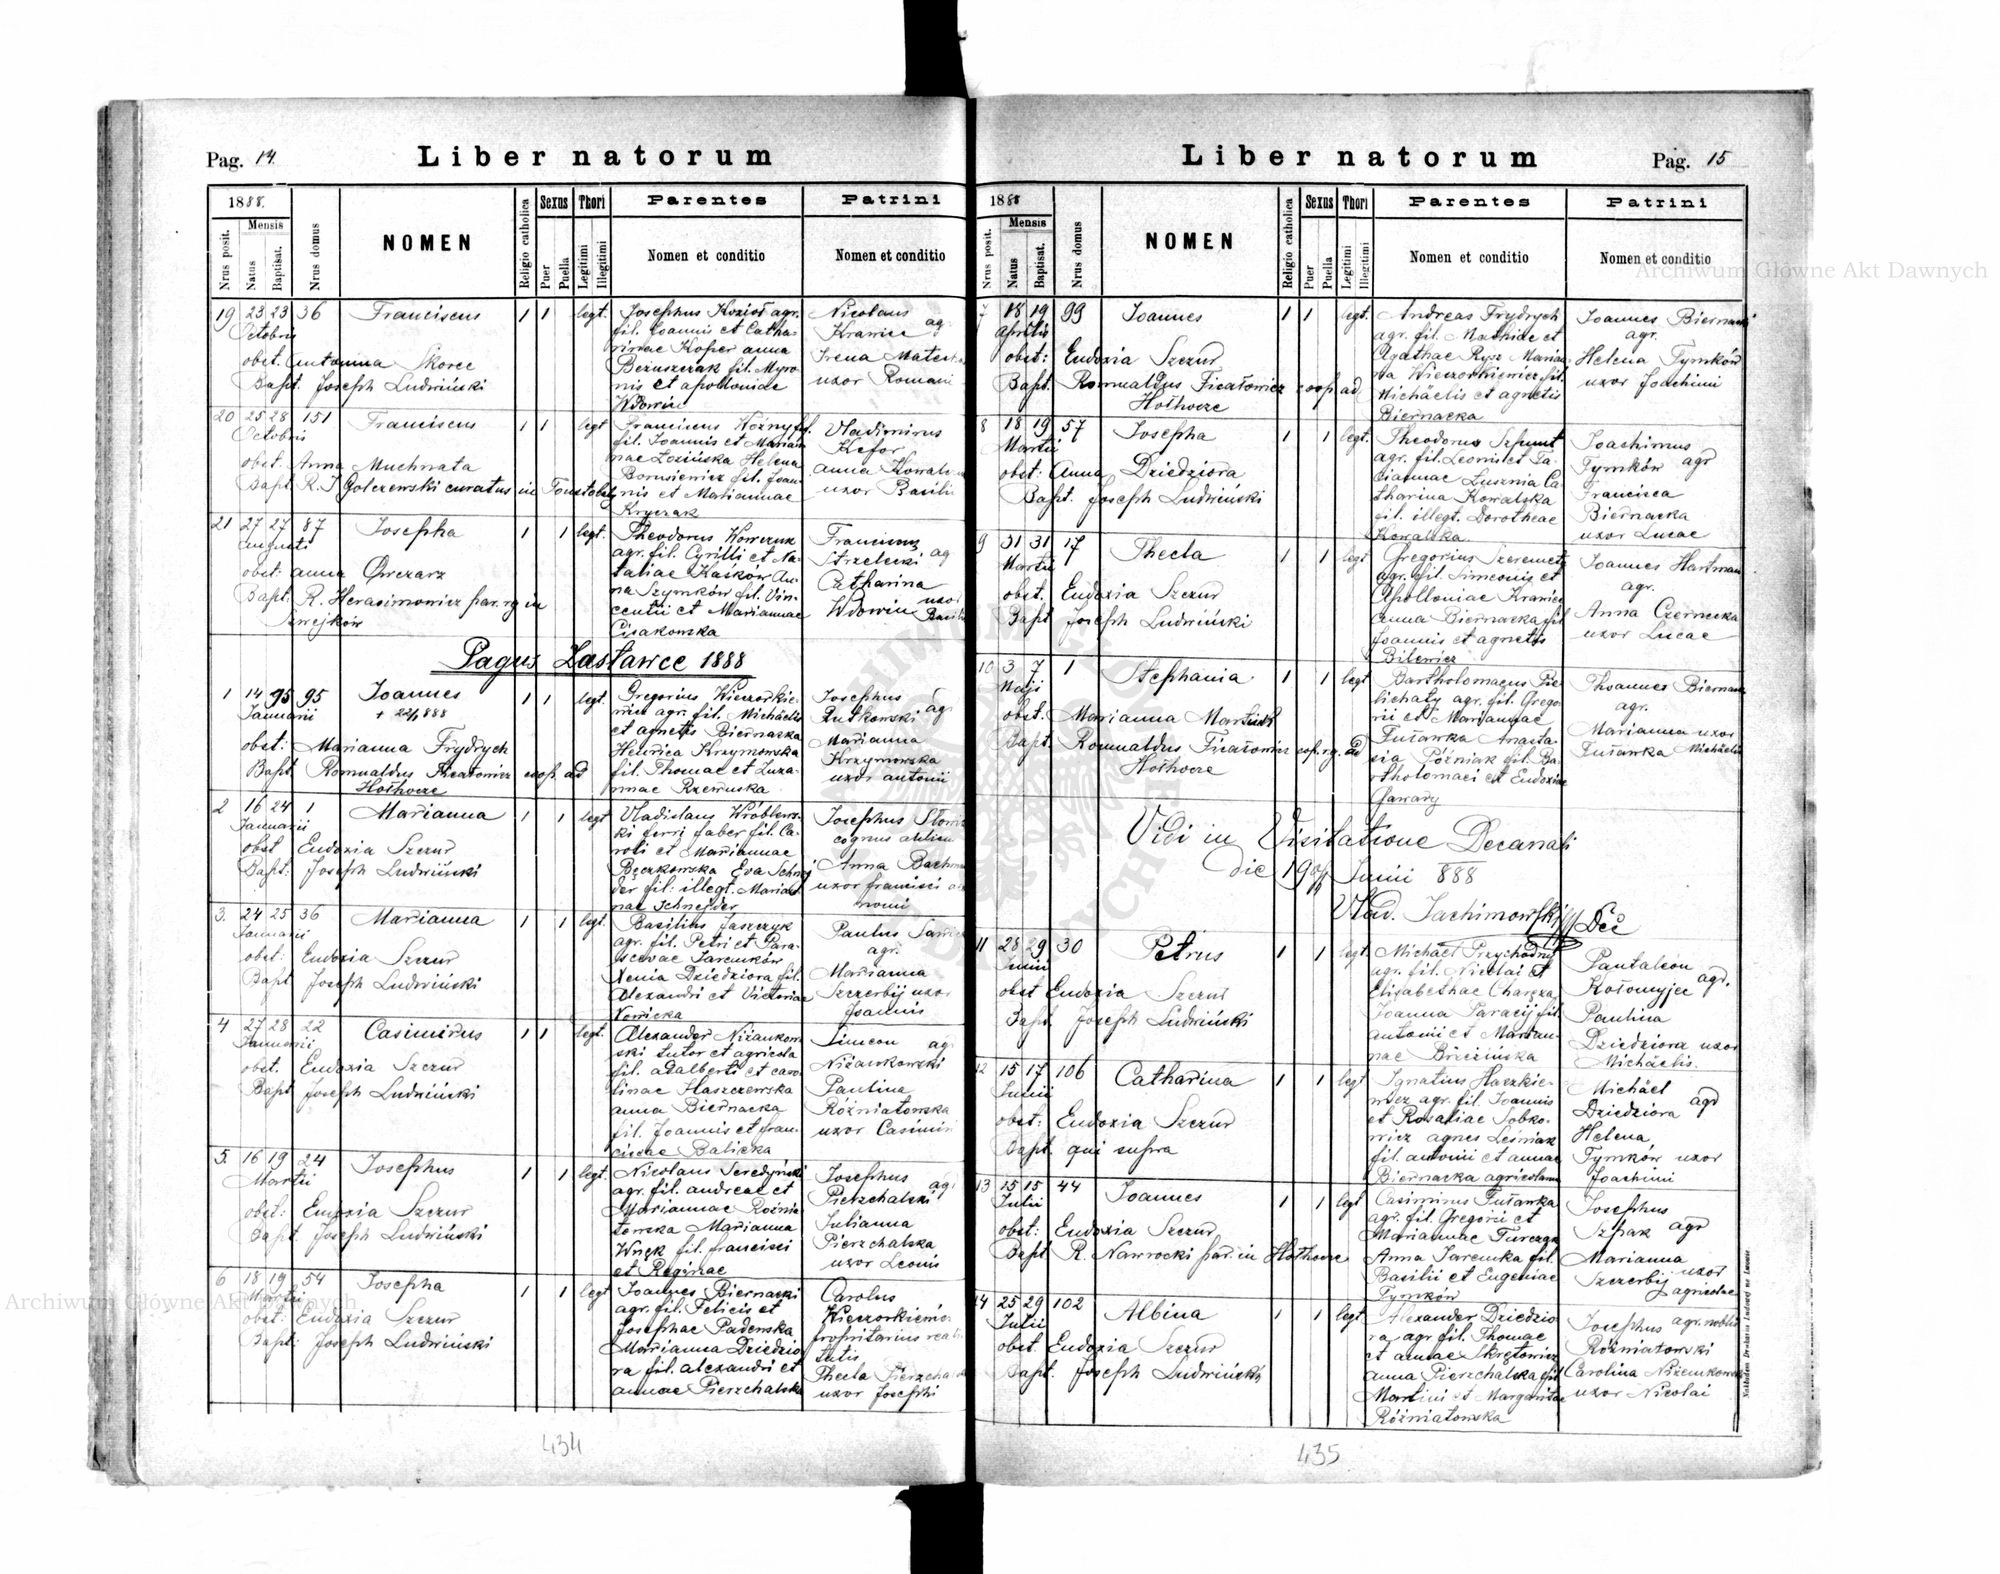 Pag. 14.
Liber natorum
1888.
Nrus posit.
Mensis
Natus
Baptisat.
Nrus domus
NOMEN
Religio catholica
Sexus
Puer
Puella
Thori
Legitimi
Illegitimi
Parentes
Nomen et conditio
Patrini
Nomen et conditio
19 23 23 36 Franciscus 1 1 legt.
Octobris
obst. Antonina Skorec
Bapt. Joseph Ludwiński
Josephus Kozioł agr.
fil. Joannis et Catha-
rinae Koper Anna
Bezuszczak fil. Myro-
nis et Apolloniae
Wdowin
Nicolaus
Krawice ag
Irena
uxor Romani
20 25 28 151 Franciscus 1 1 legt
Octobris
obst. Anna Muchnata
Bapt. R. J. Golczewski curatus in Toustobaby
Franciscus Woźny
fil. Joannis et Marian
nae Łozińska Helena
Borusiewicz fil. Joan-
nis et Mariannae
Kryczak
Vladimirus
Kefor
Anna
uxor Basilii
21 27 27 87 Josepha 1 1 legt.
Augusti
obst: Anna Owczarz
Bapt. R. Herasimowicz par. rg in
Szwejków
Theodorus
agr. fil. Cyrilli et Na-
taliae Kaśków An-
na Szymków fil. Vin-
centii et Mariannae
Cisakowska
Franciscus
Strzelecki ag
Catharina
Wdowin uxor
Basilii
Pagus Zastawce 1888
1 14 95 95 Joannes 1 1 legt.
Januarii + 22/1 888
obst: Marianna Frydrych
Bapt Romualdus Ficałowicz coop. ad
Hołhocze
Gregorius Wieczorkie-
wicz agr. fil. Michaëlis
et Agnetis Biernacka
Henrica Krzymowska
fil. Thomae et Zuza-
nnae Rzewuska
Josephus
Rutkowski ag
Marianna
Krzymowska
uxor Antonii
2 16 24 1 Marianna 1 1 legt
Januarii
obst Eudoxia Szczur
Bapt: Joseph Ludwiński
Vladislaus Wróblews-
ki ferri faber fil. Ca-
roli et Mariannae
Bęczkowska Eva Schnej
der fil. illegt. Marian
nae Schnejder
Josephus
Anna
uxor Francisci
3. 24 25 36 Marianna 1 1 legt.
Januarii
obst: Eudoxia Szczur
Bapt Joseph Ludwiński
Basilius Jaszczyk
agr. fil. Petri et Para-
scevae Jaremków
Xenia Dziedziora fil.
Alexandri et Victoriae
Nowicka
Paulus
agr.
Marianna
Szczerbij uxor
Joannis
4 27 28 22 Casimirus 1 1 legt.
Januarii
obst. Eudoxia Szczur
Bapt Joseph Ludwiński
Alexander Niżankow-
ski sutor et agricola
fil. Adalberti et Caro
linae Haszczewska
Anna Biernacka
fil. Joannis et Fran-
ciscae Balicka
Simeon ag
Niżankowski
Paulina
Różniatowska
uxor Casimiri
5. 16 19 24 Josephus 1 1 legt.
Martii
obst: Eudoxia Szczur
Bapt. Joseph Ludwiński
Nicolaus Seredyński
agr. fil. Andreae et
Mariannae Roźnia
towska Marianna
Wnęk fil. Francisci
et Reginae
Josephus ag.
Pierzchalski
Julianna
Pierzchalska
uxor Leonis
6 18 19 54 Josepha 1 1 legt
Martii
obst: Eudoxia Szczur
Bapt: Joseph Ludwiński
Joannes Biernacki
agr. fil. Felicis et
Josephae Padewska
Marianna Dziedzio
ra fil. Alexandri et
Annae Pierzchalska
Carolus
Wieczorkiewicz
proprietarius
Thecla
uxor Josephi
434
Liber natorum
Pag. 15
1888
Nrus posit.
Mensis
Natus
Baptisat.
Nrus domus
NOMEN
Religio catholica
Sexus
Puer
Puella
Thori
Legitimi
Illegitimi
Parentes
Nomen et conditio
Patrini
Nomen et conditio
7 18 19 99 Joannes 1 1 legt.
Aprilis
obst: Eudoxia Szczur
Bapt. Romualdus Ficałowicz coop. ad
Hołhocze
Andreas Frydrych
agr. fil. Mathiae et
Agathae Rysz Marian
na Wieczorkiewicz fil.
Michaëlis et Agnetis
Biernacka
Joannes Biernacki
agr.
Helena Tymków
uxor Joachimi
8 18 19 57 Josepha 1 1 legt.
Martii
obst. Anna Dziedziora
Bapt. Joseph Ludwiński
Theodorus Szpunt
agr. fil. Leonis et Ta-
tiannae Lusznia Ca-
tharina Kowalska
fil. illegt. Dorotheae
Kowalska.
Joachimus
Tymków agr
Francisca
Biernacka
uxor Lucae
9 31 31 17 Thecla 1 1 legt
Martii
obst. Eudoxia Szczur
Bapt Joseph Ludwiński
Gregorius Szeremeta
agr. fil. Simeonis et
Apolloniae Krawice
Anna Biernacka fil
Joannis et Agnetis
Bilewicz
Joannes Hartman
agr.
Anna Czernecka
uxor Lucae
10 3 7 1 Stephania 1 1 legt
Maji
obst: Marianna
Bapt. Romualdus Ficałowicz coop. r.g. ad
Hołhocze
Bartholomaeus Pie-
lichaty agr. fil. Grego-
rii et Mariannae
Tuzanka Anasta-
sia Póżniak fil. Ba-
rtholomaei et Eudoxiae
Gawady
Joannes Biernacki
agr.
Marianna uxor
Michaëlis
Vidi in Visitatione Decanali
die 19 Junii 888
Vlad. Jachimowski Dec
11 28 29 30 Petrus 1 1 legt.
Junii
obst Eudoxia Szczur
Bapt. Joseph Ludwiński
Michaël Przychodny
agr. fil. Nicolai et
Elisabethae Charęza
Joanna Paracij fil.
Antonii et Marian-
nae Brzezińska
Pantaleon
Kołomyjec agr.
Paulina
Dziedziora uxor
Michaëlis.
12 15 17 106 Catharina 1 1 legt
Junii
obst: Eudoxia Szczur
Bapt. qui supra
Ignatius Haczkie-
wicz agr. fil. Joannis
et Rosaliae Sobko-
wicz Agnes Leśniak
fil. Antonii et Annae
Biernacka agricolarum
Michaël
Dziedziora agr
Helena
Tymków uxor
Joachimi
13 15 15 44 Joannes 1 1 legt
Julii
obst: Eudoxia Szczur
Bapt R. Nawrocki par. in Hołhocze
Casimirus
agr. fil. Gregorii et
Mariannae Turczyn
Anna Jaremka fil.
Basilii et Eugeniae
Tymków
Josephus
Szpak agr
Marianna
Szczerbij uxor
agricolae
14 25 29 102 Albina 1 1 legt
Julii
obst. Eudoxia Szczur
Bapt. Joseph Ludwiński
Alexander Dziedzio
ra agr fil. Thomae
et Annae Skrętowicz
Anna Pierzchalska fil
Martini et Margaritae
Różniatowska
Josephus agr. nobilis
Różniatowski
Carolina Niżankowska
uxor Nicolai
Nakładem Drukarni Ludowej we Lwowie
435
Archiwum Główne Akt Dawnych
Archiwum Główne Akt Dawnych